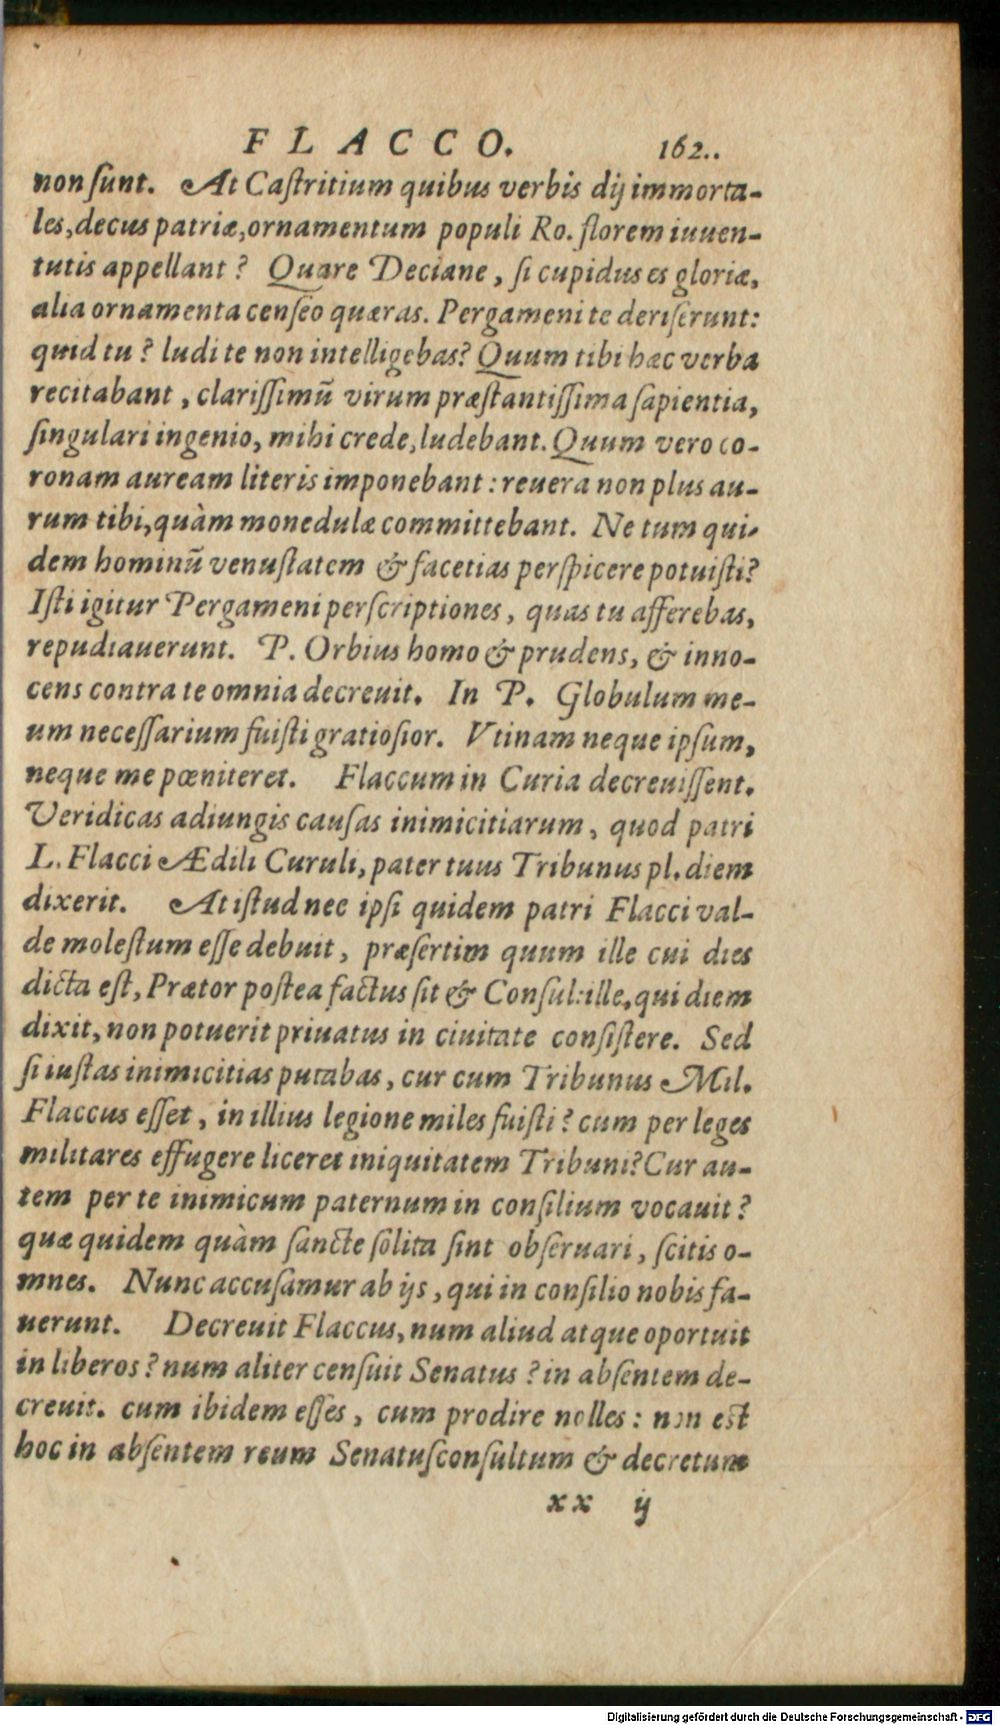 FLACCO. 162..
non ſunt. At Caſtritium quibus verbis dij immorta-
les, decus patriæ, ornamentum populi Ro. florem iuuen-
tutis appellant? Quare Deciane, ſi cupidus es gloriæ,
alia ornamenta cenſeo quæras. Pergameni te deriſerunt:
quid tu? ludi te non intelligebas? Quum tibi hæc verba
recitabant, clariſſimū virum præſtantiſſima ſapientia,
ſingulari ingenio, mihi crede, ludebant. Quum vero co-
ronam auream literis imponebant: reuera non plus au-
rum tibi, quàm monedulæ committebant. Ne tum qui-
dem hominū venuſtatem & facetias perſpicere potuiſti?
Iſti igitur Pergameni perſcriptiones, quas tu afferebas,
repudiauerunt. P. Orbius homo & prudens, & inno-
cens contra te omnia decreuit. In P. Globulum me-
um neceſſarium fuiſti gratioſior. Vtinam neque ipſum,
neque me pœniteret. Flaccum in Curia decreuiſſent.
Veridicas adiungis cauſas inimicitiarum, quod patri
L. Flacci Ædili Curuli, pater tuus Tribunus pl. diem
dixerit. At iſtud nec ipſi quidem patri Flacci val-
de moleſtum eſſe debuit, præſertim quum ille cui dies
dicta eſt, Prætor poſtea factus ſit & Conſul: ille, qui diem
dixit, non potuerit priuatus in ciuitate conſiſtere. Sed
ſi iuſtas inimicitias putabas, cur cum Tribunus Mil.
Flaccus eſſet, in illius legione miles fuiſti? cum per leges
militares effugere liceret iniquitatem Tribuni? Cur au-
tem per te inimicum paternum in conſilium vocauit?
quæ quidem quàm ſancte ſolita ſint obſeruari, ſcitis o-
mnes. Nunc accuſamur ab ijs, qui in conſilio nobis fa-
uerunt. Decreuit Flaccus, num aliud atque oportuit
in liberos? num aliter cenſuit Senatus? in abſentem de-
creuit. cum ibidem eſſes, cum prodire nolles: non eſt
hoc in abſentem reum Senatuſconſultum & decretum
xx ij
Digitalisierung gefördert durch die Deutsche Forschungsgemeinschaft - DFG